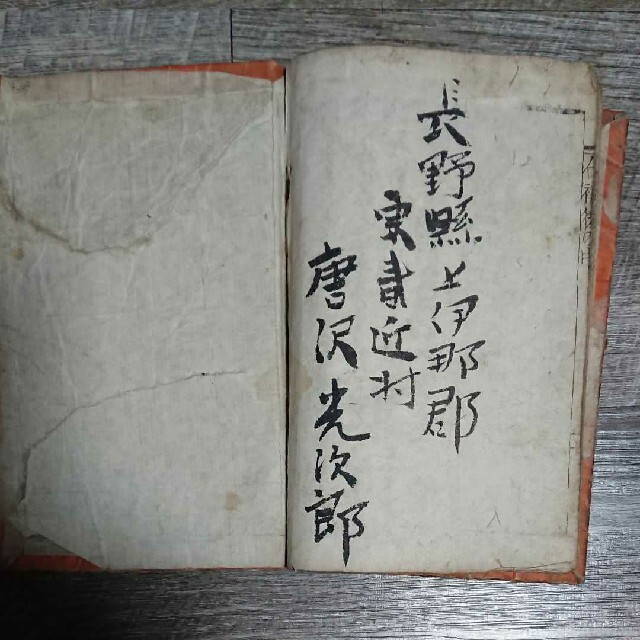 長野縣上伊那郡
東春近村
唐沢光次郎